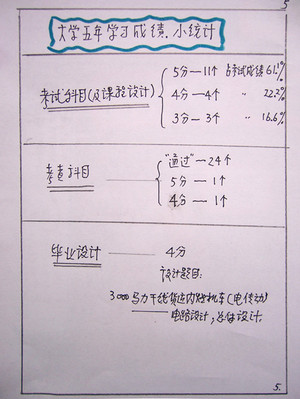 5
大学五年学习成绩.小统计
考试科目(及课程设计)
5分—11个 占考试成绩61.1%
4分—4个 〃 22.2%
3分—3个 〃 16.6%
考查科目
"通过"—24个
5分—1个
4分—1个
毕业设计 —— 4分
设计题目:
3000马力干线货运内燃机车(电传动)
——电路设计,总体设计.
5.